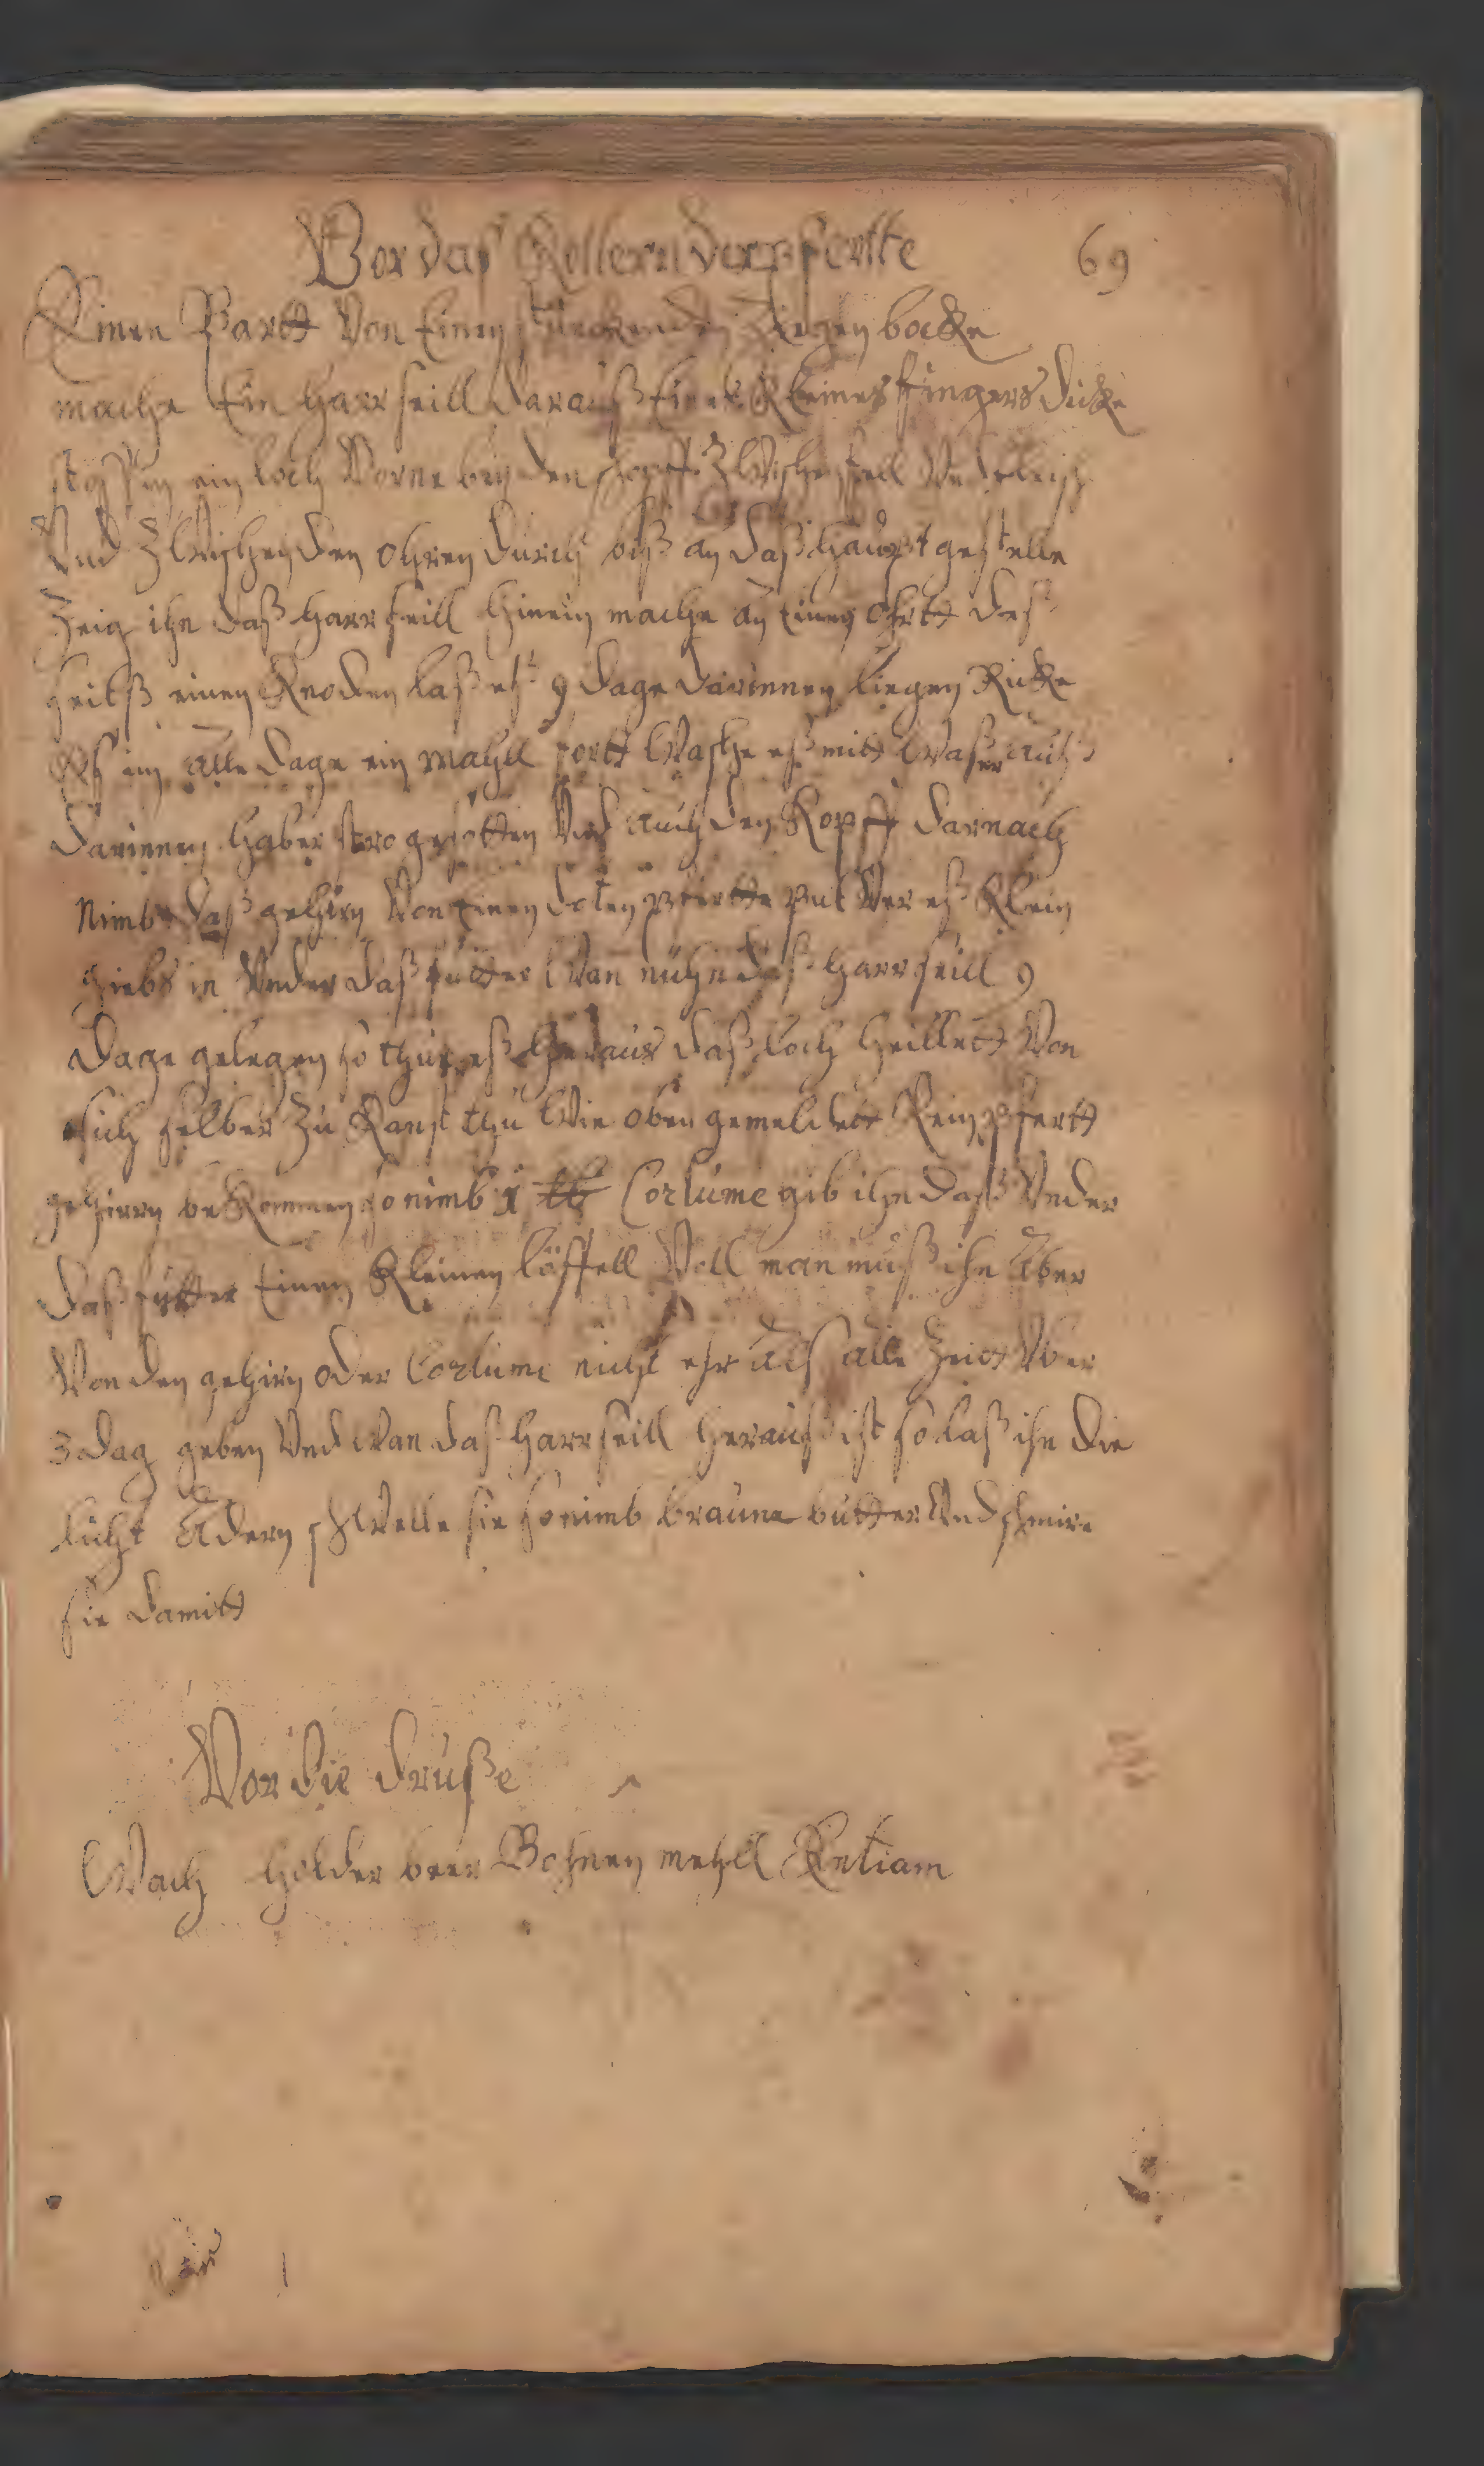 Vor das Kollern der pferte
69
Einen Bartt Von Einen stinckenden Ziegen bocke
mache Ein Harr seill darauß Eines Kleines fingers dicke
stoß Im ein loch Vorne bey den schopff Zwischen fell Vnd fleisch
Vnd Zwischen den ohren durch biß an daß haupt gestelle
Zeig ihn daß harr seill hinein mache an einen ohrtt deß
seilß einen Knoden laß eß 9 dage darinnen liegen Ricke
Eß im alle dage ein mahll fortt Wasche eß mitt Waßer auß
darinnen haber stro gesotten Vnd auch den Kopff darnach
Nimb daß gehirn Von einen doten pfertte pulVer eß Klein
giebs in Vnder daß futter Wan nuhn daß harr seill 9
dage gelegen so thue eß heraus daß loch heillett Von
sich selber Zu Kanst thu Wie oben gemeldett Kein pfertt
gehirn beKommen so nimb 1 lb Corlume gib ihn daß Vnder
daß futter Einen Kleinen löffell Voll man muß ihn Aber
Von den gehirn oder Corlume nicht ehr alß alle Zeitt Vber
3 dag geben Vnd wan daß harr seill herauß ist so laß ihn die
licht Adern schWelle sie so nimb braune butter Vnd schmire
sie damitt
Vor die druße
Wach holder beer Bohnen mehll Entiam